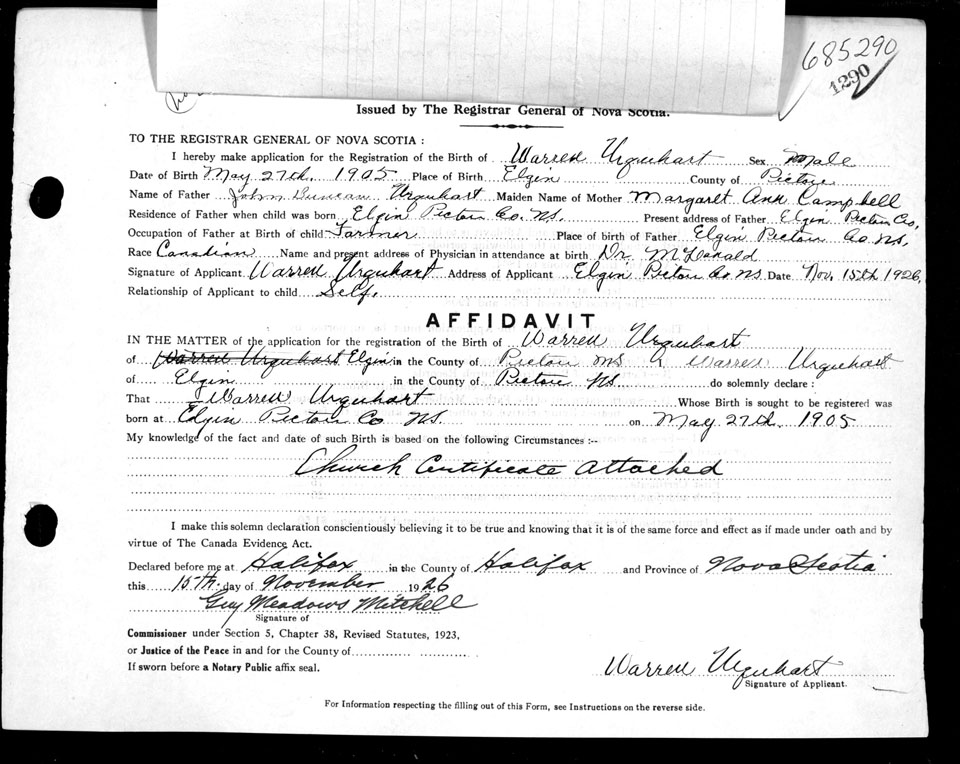 685290
1290
Issued by The Registrar General of Nova Scotia.
TO THE REGISTRAR GENERAL OF NOVA SCOTIA :
I hereby make application for the Registration of the Birth of Warren Urquhart Sex Male
Date of Birth May 27th, 1905 Place of Birth Elgin County of Pictou
Name of Father John Duncan Urquhart Maiden Name of Mother Margaret Ann Campbell
Residence of Father when child was born Elgin Pictou Co. NS. Present address of Father Elgin Pictou Co.
Occupation of Father at Birth of child Farmer Place of birth of Father Elgin Pictou Co. NS.
Race Canadian Name and present address of Physician in attendance at birth Dr. McDonald
Signature of Applicant Warren Urquhart Address of Applicant Elgin Pictou Co. NS Date Nov. 15th 1926.
Relationship of Applicant to child Self.
AFFIDAVIT
IN THE MATTER of the application for the registration of the Birth of Warren Urquhart
of Warren Urquhart Elgin in the County of Pictou NS I Warren Urquhart
of Elgin in the County of Pictou NS. do solemnly declare :
That I Warren Urquhart Whose Birth is sought to be registered was
born at Elgin Pictou Co NS. on May 27th, 1905
My knowledge of the fact and date of such Birth is based on the following Circumstances :--
Church Certificate Attached
I make this solemn declaration conscientiously believing it to be true and knowing that it is of the same force and effect as if made under oath and by
virtue of The Canada Evidence Act.
Declared before me at Halifax in the County of Halifax and Province of Nova Scotia
this 15th day of November 1926
Guy Meadows Mitchell
Signature of
Commissioner under Section 5, Chapter 38, Revised Statutes, 1923,
or Justice of the Peace in and for the County of
If sworn before a Notary Public affix seal.
Warren Urquhart
Signature of Applicant.
For Information respecting the filling out of this Form, see Instructions on the reverse side.